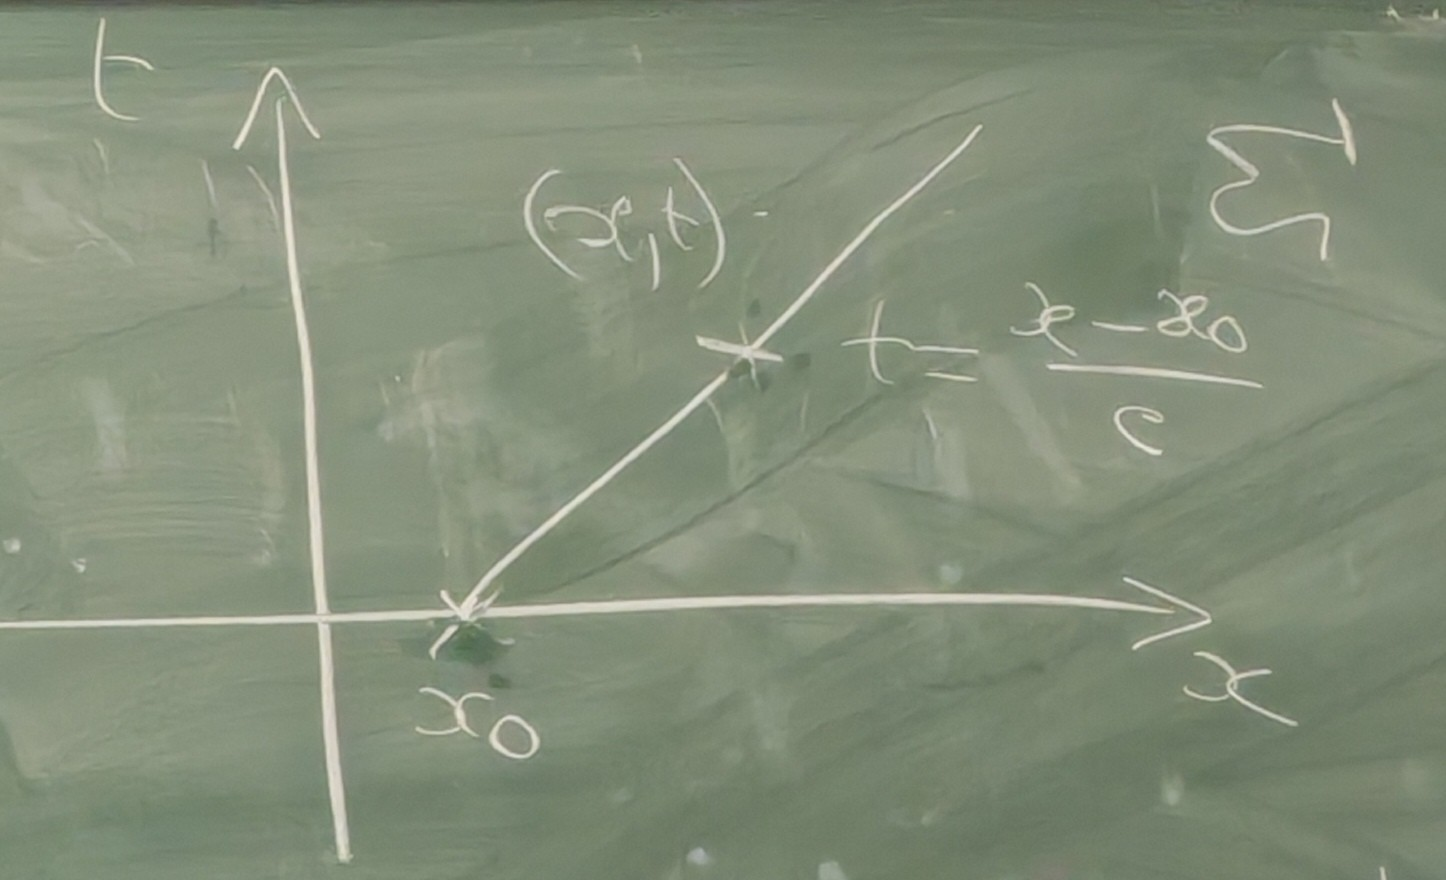 t
(x,t)
Σ
t = \frac{x - x_0}{c}
x_0
x